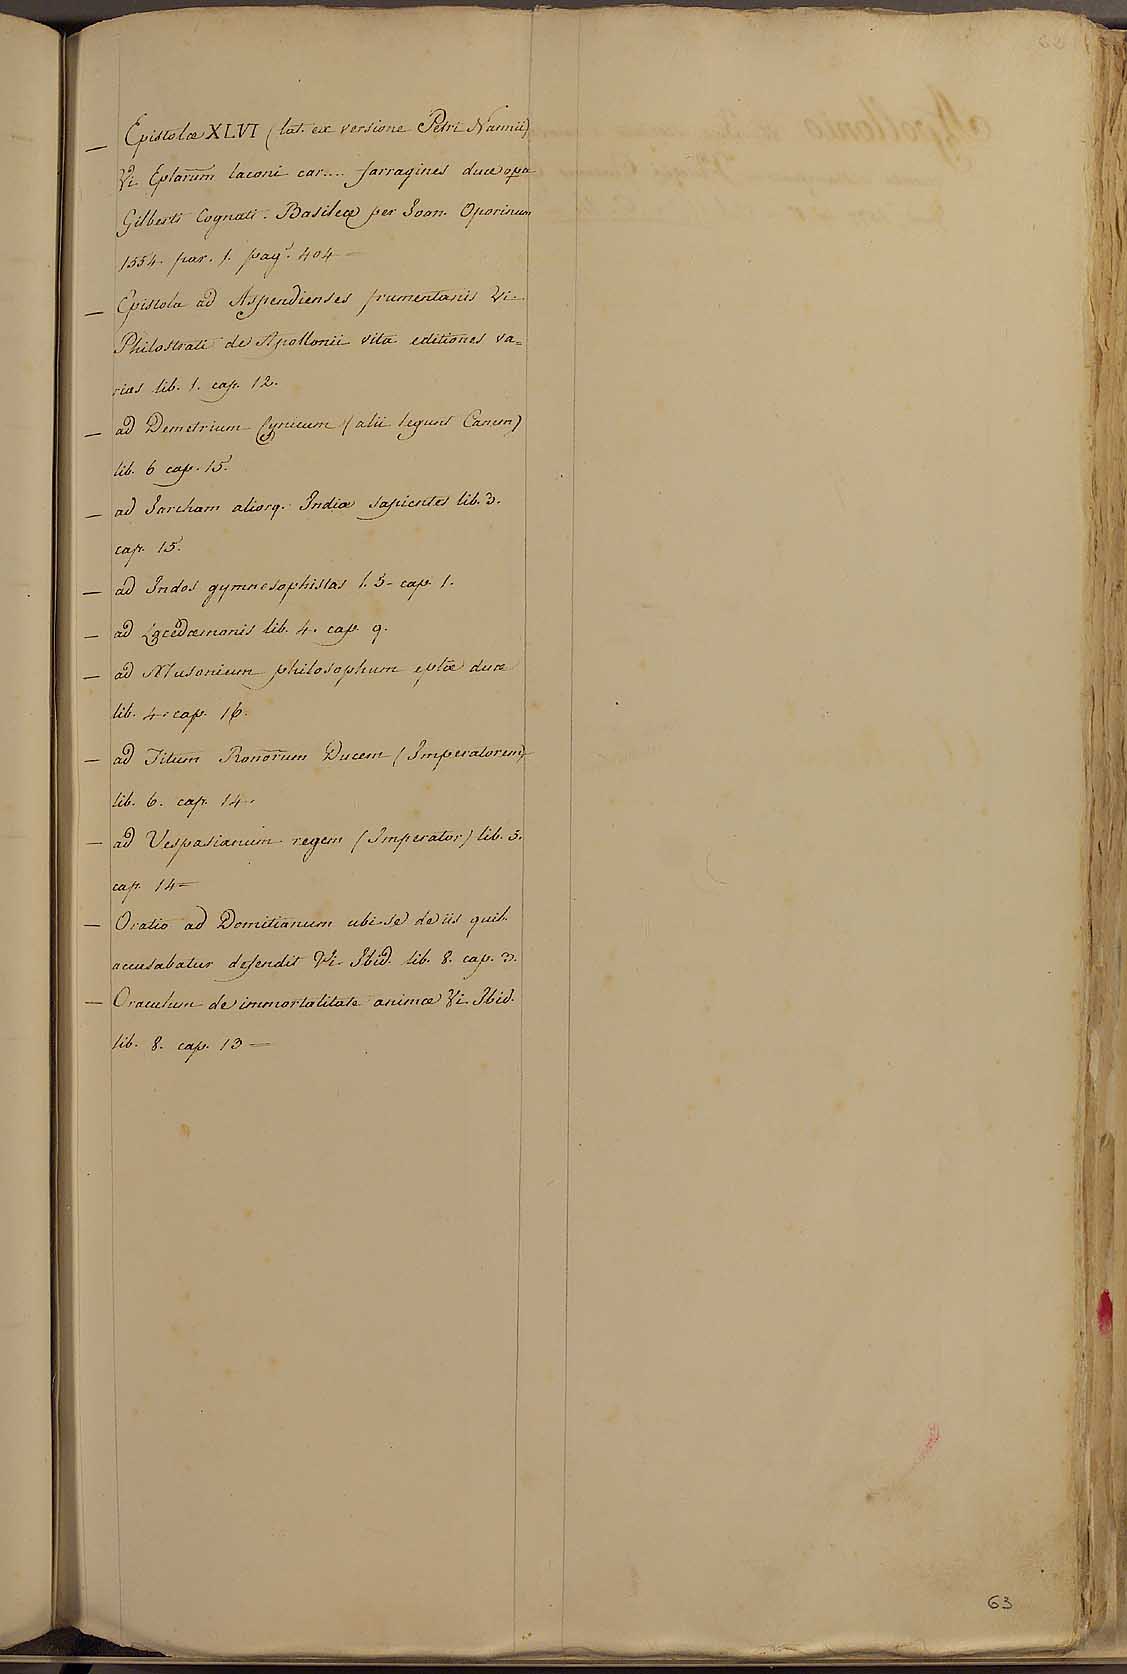 — Epistolæ XLVI (lat. ex versione Petri Nannii)
Vi. Eplarum laconicar.... farragines duæ opa
Gilberti Cognati. Basileæ per Ioan. Oporinum
1554. par. 1. pag. 404 —
— Epistola ad Aspendienses frumentariis Vi.
Philostrati de Apollonii vita editiones va=
rias lib. 1. cap. 12.
— ad Demetrium Cynicum (alii legunt Canem)
lib. 6 cap. 15.
— ad Iarcham aliosq. Indiæ sapientes lib. 3.
cap. 15.
— ad Indos gymnosophistas l. 3. cap. 1.
— ad Lacedæmonis lib. 4. cap. 9.
— ad Musonium philosophum eplæ duæ
lib. 4. cap. 16.
— ad Titum Ronorum Ducem (Imperatorem)
lib. 6. cap. 14.
— ad Vespasianum regem (Imperator) lib. 5.
cap. 14 —
— Oratio ad Domitianum ubi se de iis quib.
accusabatur defendit Vi. Ibid. lib. 8. cap. 3.
— Oraculum de immortalitate animæ Vi. Ibid.
lib. 8. cap. 13 —
63